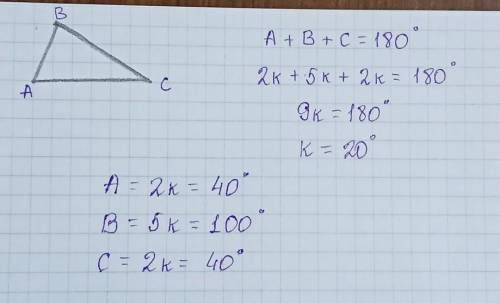 B
A
C
A + B + C = 180°
2к + 5к + 2к = 180°
9к = 180°
к = 20°
A = 2к = 40°
B = 5к = 100°
C = 2к = 40°